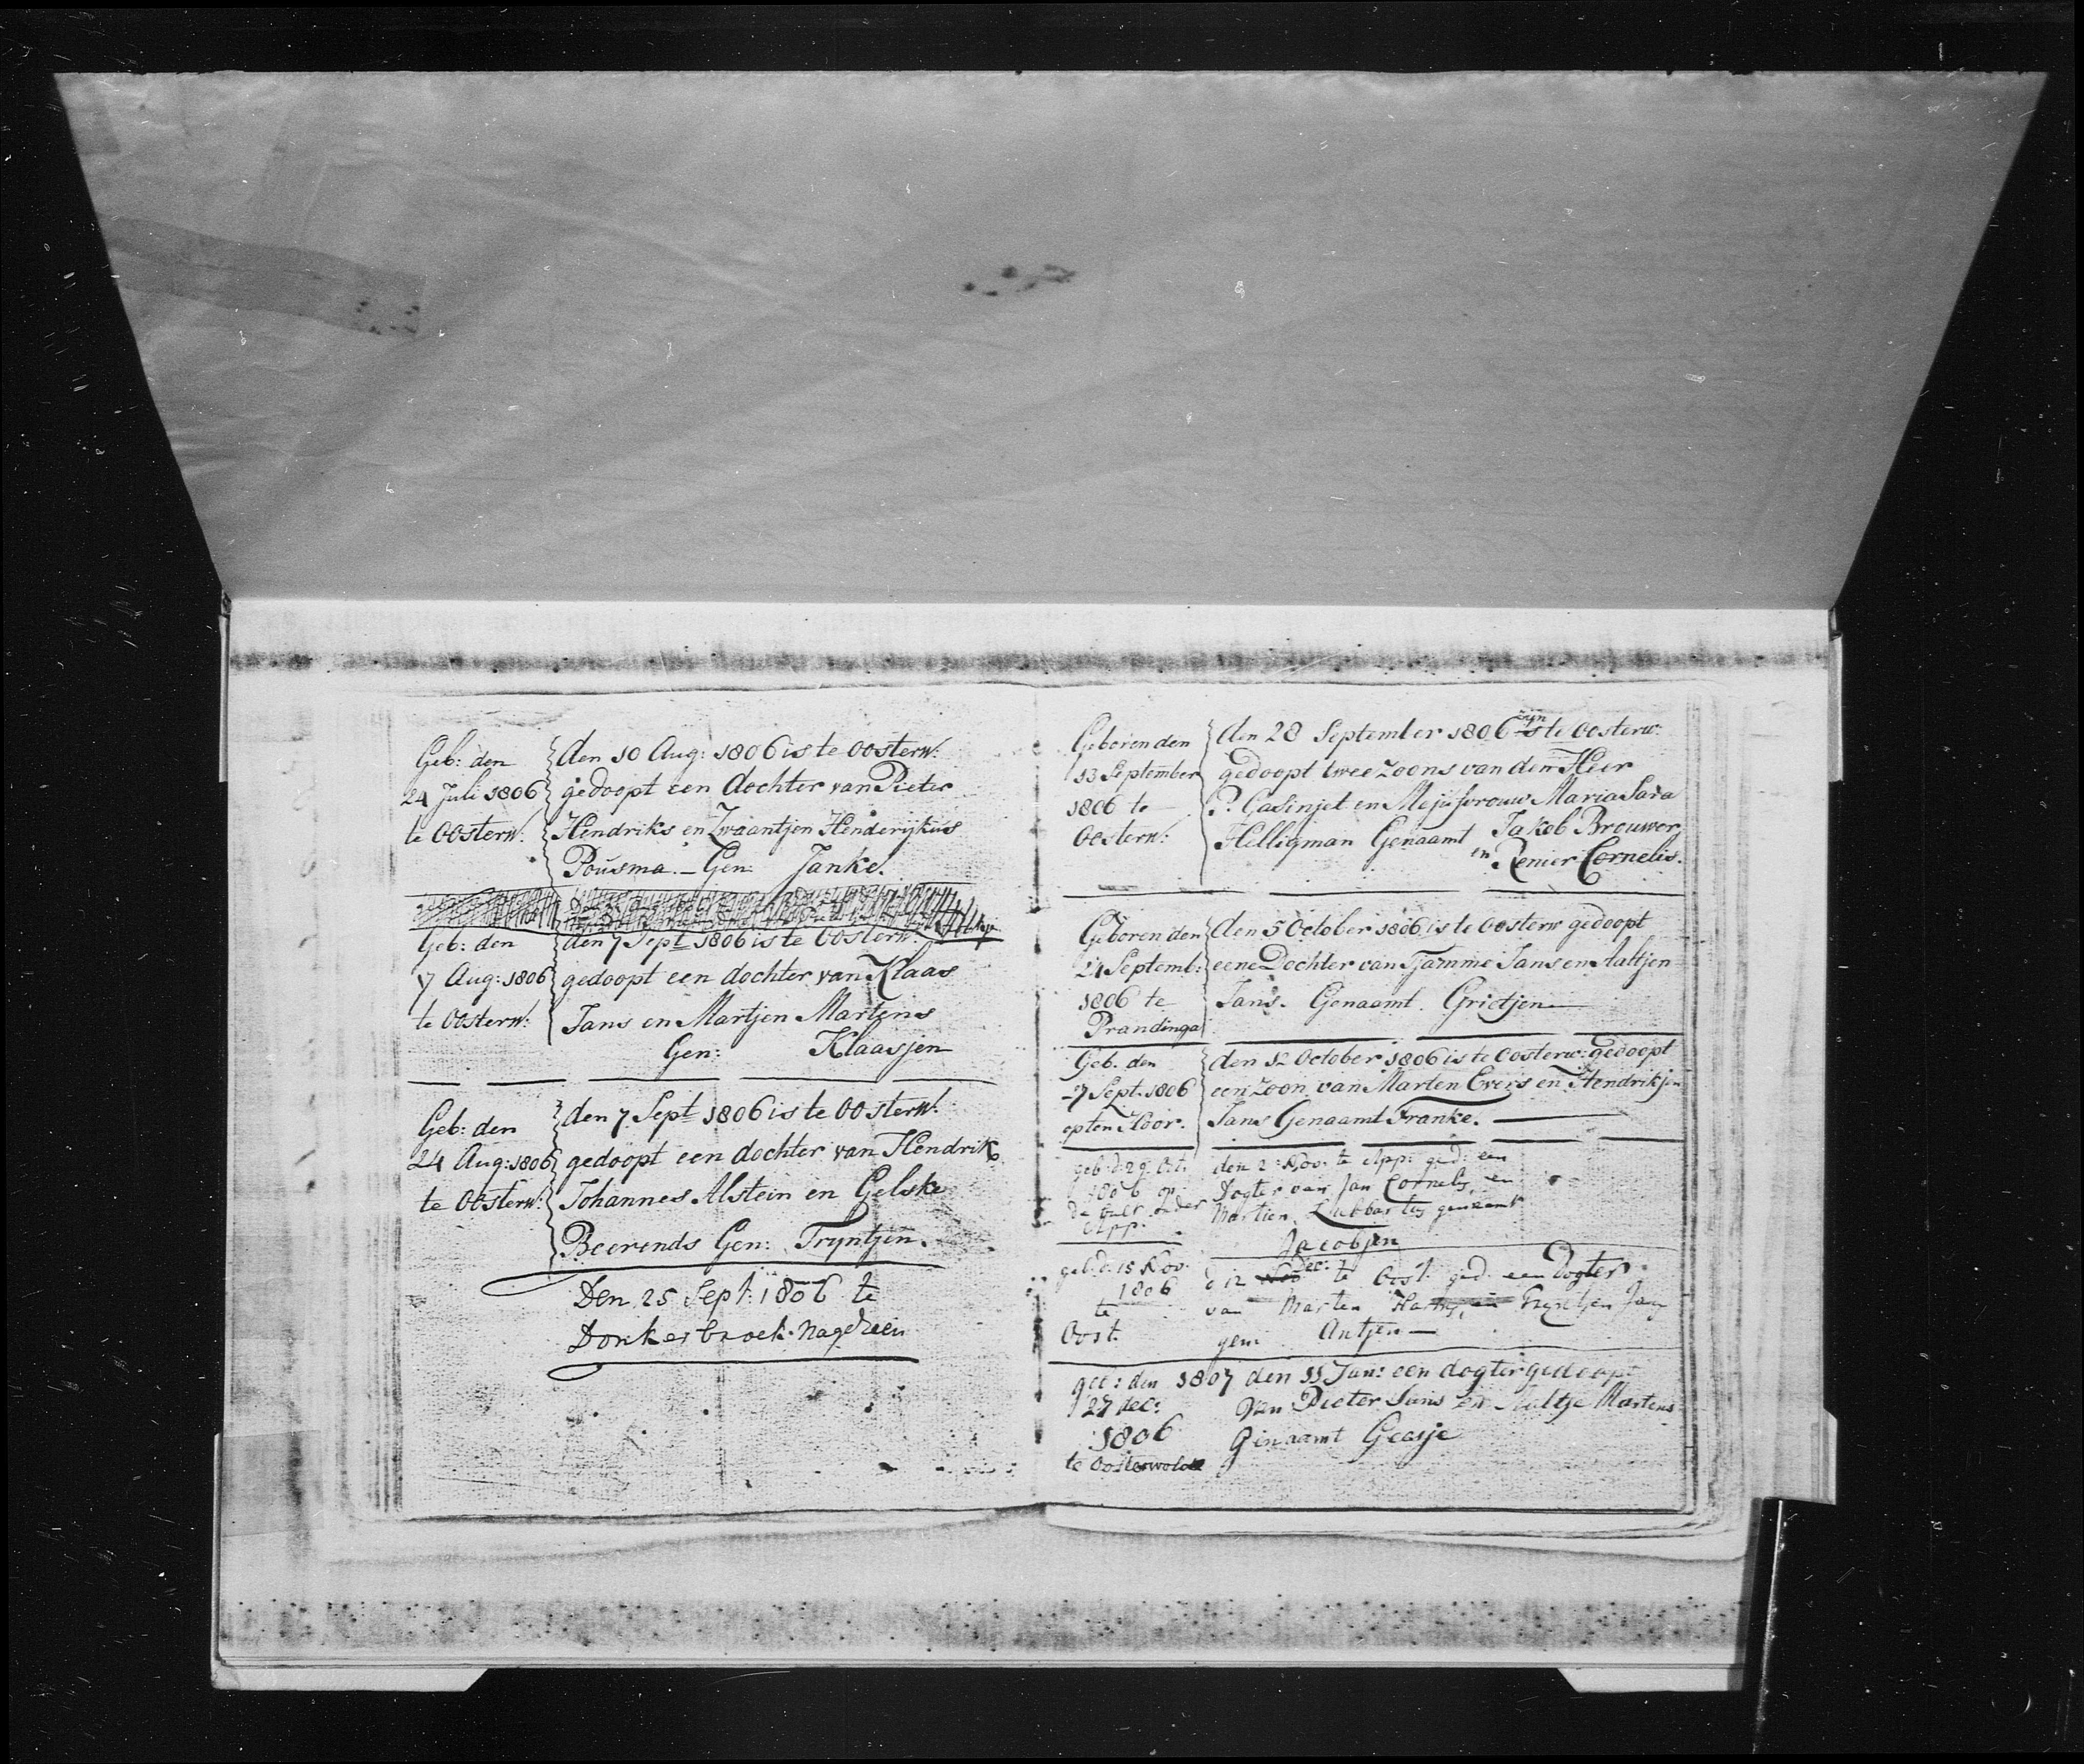 Geb: den
24 Juli 1806
te Oosterw:
den 10 Aug: 1806 is te Oosterw:
gedoopt een dochter van Pieter
Hendriks en Zwaantjen Henderijkus
Pousma. – Gen: Janke.
Geb: den
7 Aug: 1806
te Oosterw:
den 7 Sept 1806 is te Oosterw:
gedoopt een dochter van Klaas
Jans en Martjen Martens
Gen: Klaasjen
Geb: den
24 Aug: 1806
te Oosterw:
den 7 Sept 1806 is te Oosterw:
gedoopt een dochter van Hendrik
Johannes Alstein en Gelske
Beerends Gen: Tryntjen.
Den 25 Sept: 1806 te
Donkerbroek nagezien
Geboren den
13 September
1806 te
Oosterw:
den 28 September 1806 zijn te Oosterw:
gedoopt twee zoons van den Heer
P. Casinjet en Mejufvrouw Maria Sara
Helligman Genaamt Jakob Brouwer
en Renier Cornelis.
Geboren den
24 Septemb:
1806 te
Prandinga
den 5 October 1806 is te Oosterw gedoopt
eene Dochter van Tjamme Jans en Aaltjen
Jans. Genaamt Grietjen
Geb. den
27 Sept. 1806
op ten Hoor.
den 12 October 1806 is te Oosterw: gedoopt
een zoon van Marten Evers en Hendrikjen
Jans Genaamt Franke.
geb: d: 29 Oct.
1806 op
de
App.
den 2 Nov. te App: ged: een
Dogter van Jan Cornelis, en
Martien Lubbartes genaamt
Jacobjen
geb. d. 15 Nov.
1806
te
Oost.
d 12 Dec: te Oost. ged. een Dogter
van Marten en Tryntjen Jans
gen: Antjen
geb: den
27 dec:
1806
te Oosterwolde
1807 den 11 Jan: een dogter gedoopt
van Pieter Jans en Aaltje Martens
Genaamt Geasje